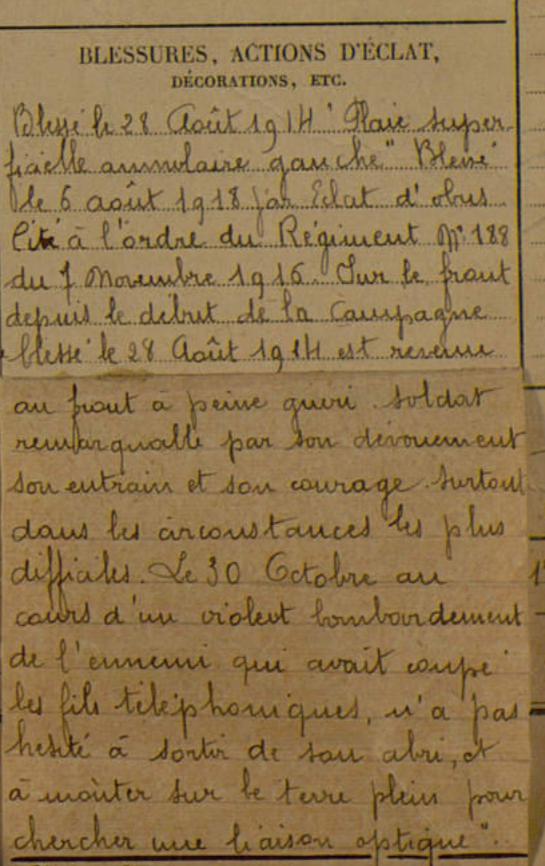 BLESSURES, ACTIONS D'ÉCLAT,
DÉCORATIONS, ETC.
Blessé le 28 Août 1914 "Plaie super-
ficielle annulaire gauche" Blessé
le 6 août 1918 par Eclat d'obus
Cité à l'ordre du Régiment N° 188
du 7 Novembre 1916. "Sur le front
depuis le début de la Campagne
blessé le 28 Août 1914 est revenu
au front à peine guéri. soldat
remarquable par son dévouement
son entrain et son courage surtout
dans les circonstances les plus
difficiles. Le 30 Octobre au
cours d'un violent bombardement
de l'ennemi qui avait coupé
les fils téléphoniques, n'a pas
hésité à sortir de son abri, et
à monter sur le terre plein pour
chercher une liaison optique".